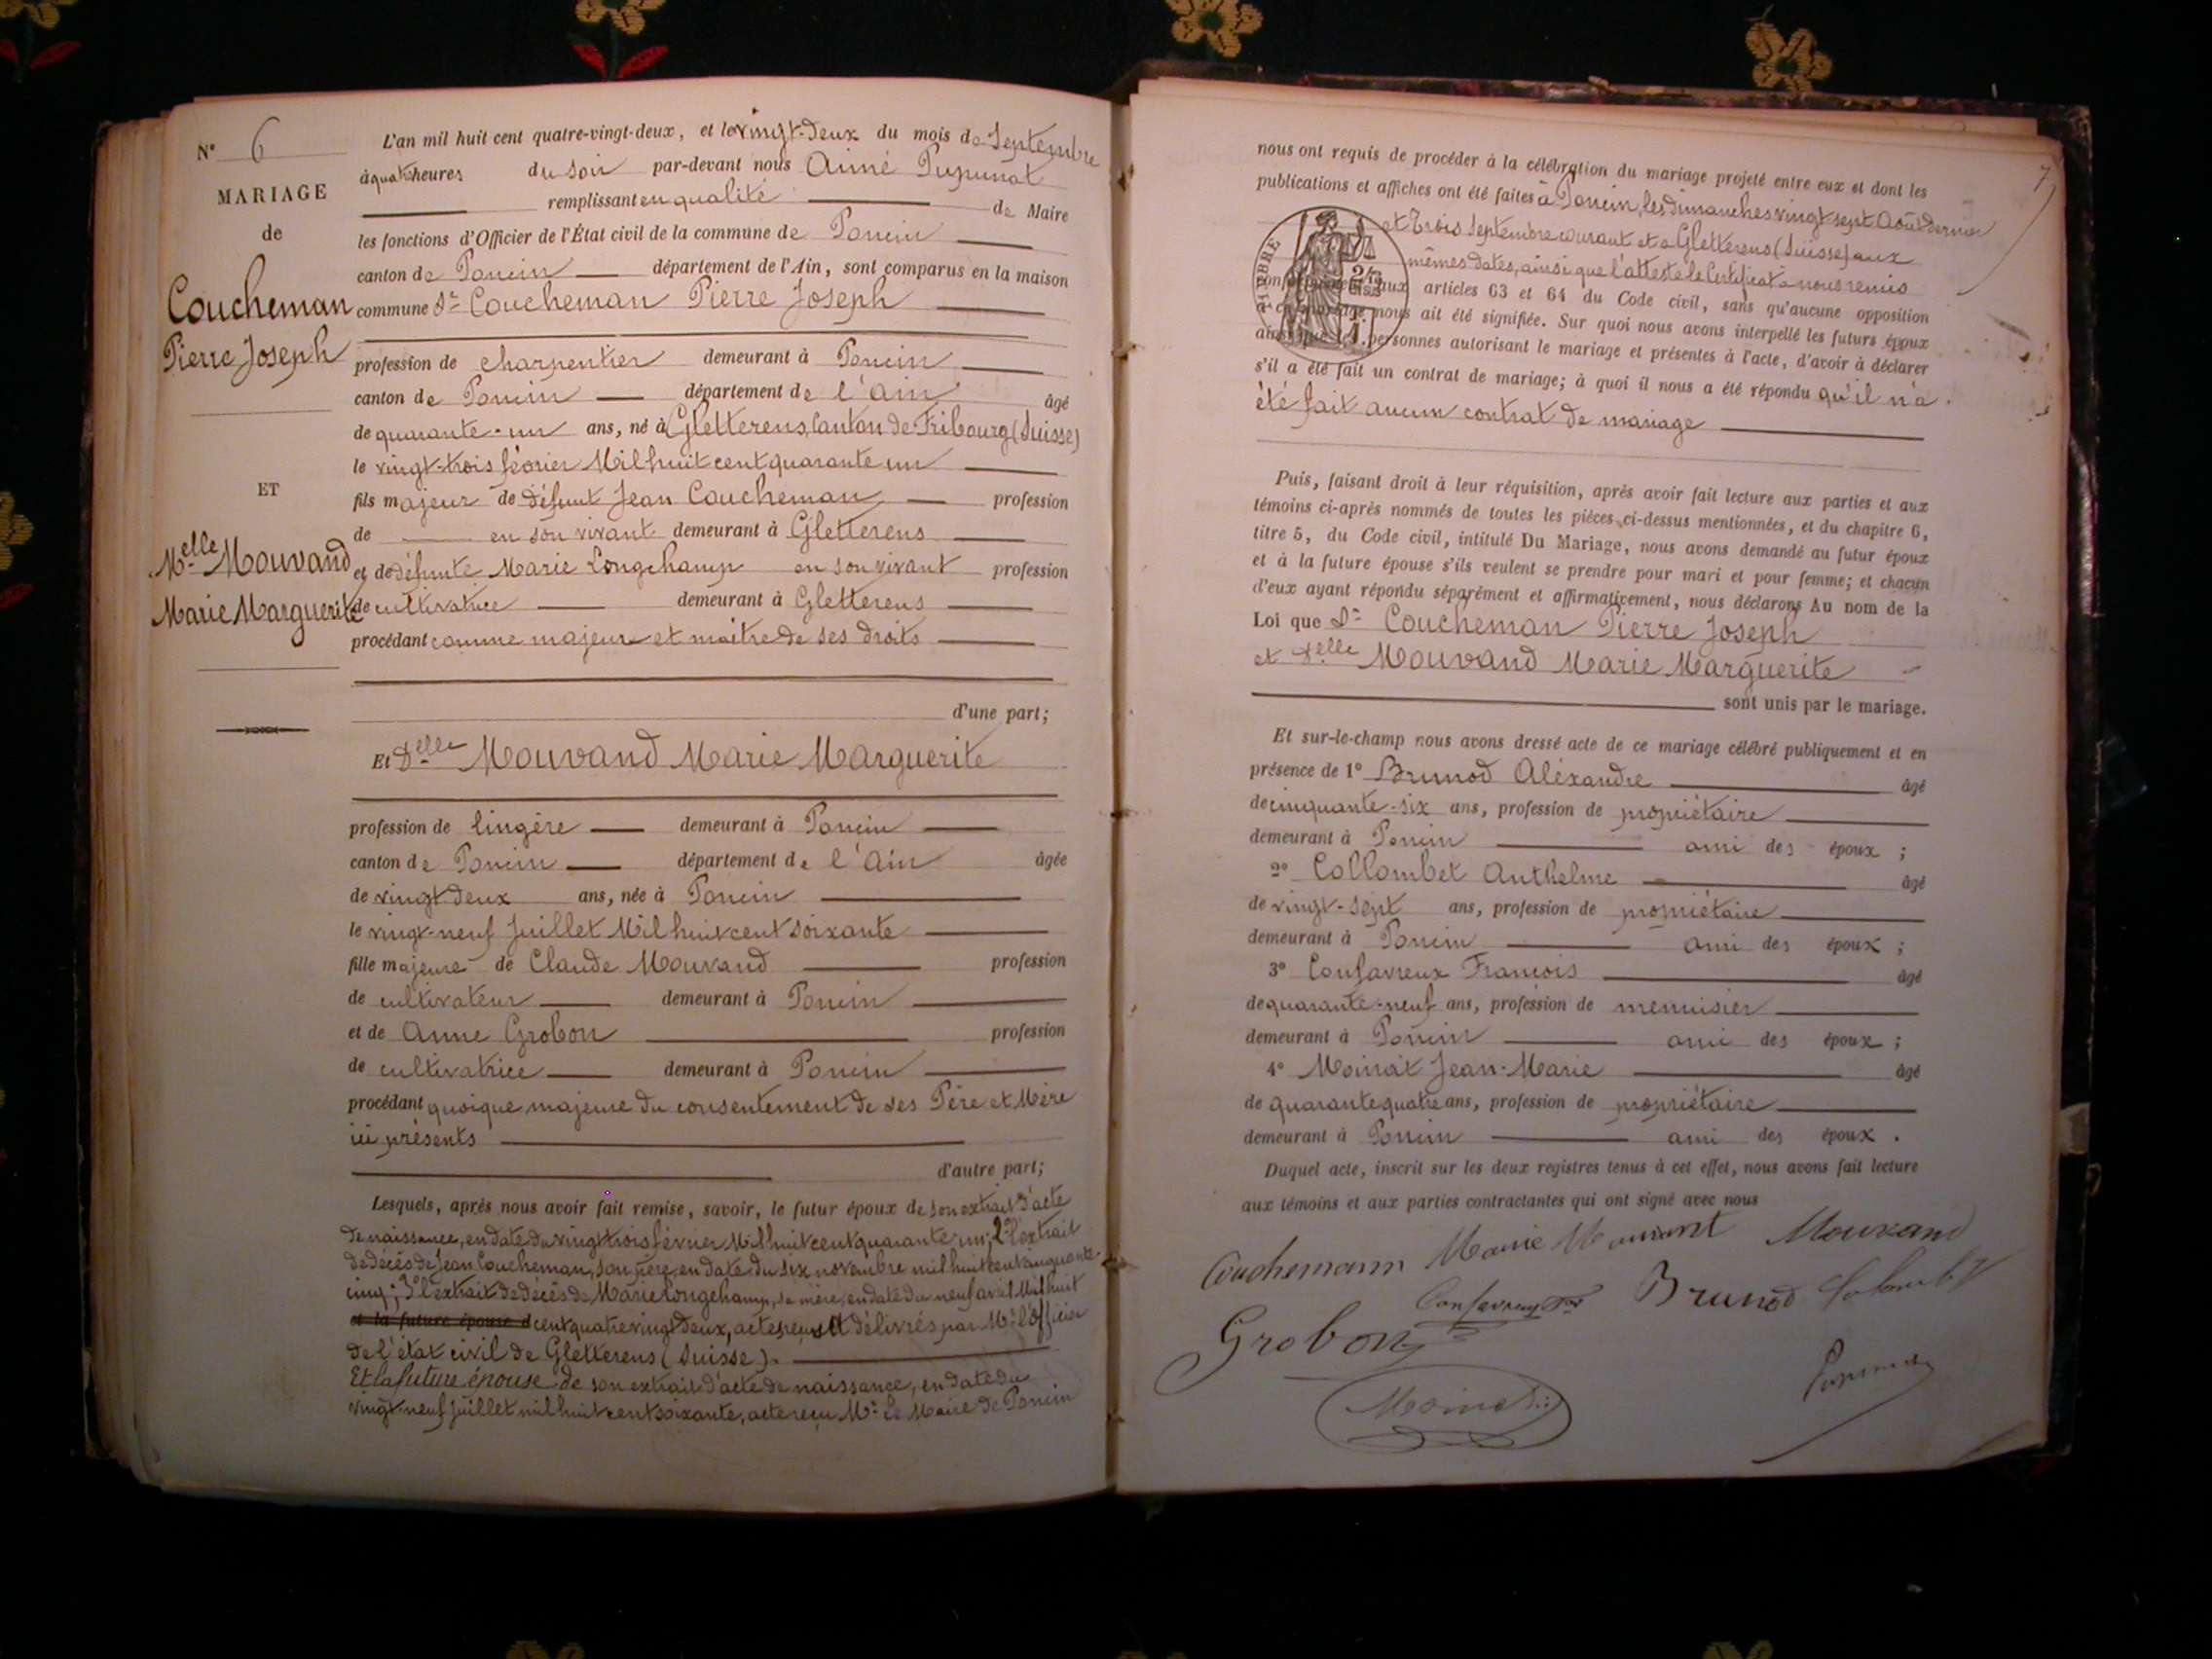 N° 6
MARIAGE
de
Coucheman
Pierre Joseph
ET
Melle Mouvand
Marie Marguerite
L'an mil huit cent quatre-vingt-deux, et le vingt-deux du mois de Septembre
à quatre heures du soir par-devant nous Aimé Pupunat
remplissant en qualité de Maire
les fonctions d'Officier de l'État civil de la commune de Poncin
canton de Poncin département de l'Ain, sont comparus en la maison
commune Sr Coucheman Pierre Joseph
profession de charpentier demeurant à Poncin
canton de Poncin département de l'Ain âgé
de quarante-un ans, né à Gletterens, Canton de Fribourg (Suisse)
le vingt-trois février Mil huit cent quarante un
fils majeur de défunt Jean Coucheman profession
de en son vivant demeurant à Gletterens
et de défunte Marie Longchamp en son vivant profession
de cultivatrice demeurant à Gletterens
procédant comme majeur et maître de ses droits
d'une part;
Et Delle Mouvand Marie Marguerite
profession de lingère demeurant à Poncin
canton de Poncin département de l'Ain âgée
de vingt deux ans, née à Poncin
le vingt-neuf Juillet Mil huit cent soixante
fille majeure de Claude Mouvand profession
de cultivateur demeurant à Poncin
et de Anne Grobon profession
de cultivatrice demeurant à Poncin
procédant quoique majeure du consentement de ses Père et Mère
ici présents
d'autre part;
Lesquels, après nous avoir fait remise, savoir, le futur époux de son extrait d'acte
de naissance, en date du vingt trois février Mil huit cent quarante-un; 2° l'extrait
de décès de Jean Coucheman, son père, en date du six novembre mil huit cent cinquante-
cinq; 3° l'extrait de décès de Marie Longchamp, sa mère, en date du neuf avril Mil huit
et la future épouse d cent quatre vingt deux, actes reçus et délivrés par Mr l'officier
de l'état civil de Gletterens (Suisse).
Et la future épouse de son extrait d'acte de naissance, en date du
vingt-neuf Juillet mil huit cent soixante, acte reçu Mr le Maire de Poncin
7
nous ont requis de procéder à la célébration du mariage projeté entre eux et dont les
publications et affiches ont été faites à Poncin, les dimanches vingt sept Août dernier
et trois Septembre courant et à Gletterens (Suisse) aux
mêmes dates, ainsi que l'atteste le Certificat à nous remis
TIMBRE
aux articles 63 et 64 du Code civil, sans qu'aucune opposition
nous ait été signifiée. Sur quoi nous avons interpellé les futurs époux
ainsi que les personnes autorisant le mariage et présentes à l'acte, d'avoir à déclarer
s'il a été fait un contrat de mariage; à quoi il nous a été répondu qu'il n'a
été fait aucun contrat de mariage
Puis, faisant droit à leur réquisition, après avoir fait lecture aux parties et aux
témoins ci-après nommés de toutes les pièces ci-dessus mentionnées, et du chapitre 6,
titre 5, du Code civil, intitulé Du Mariage, nous avons demandé au futur époux
et à la future épouse s'ils veulent se prendre pour mari et pour femme; et chacun
d'eux ayant répondu séparément et affirmativement, nous déclarons Au nom de la
Loi que Sr Coucheman Pierre Joseph
et Delle Mouvand Marie Marguerite
sont unis par le mariage.
Et sur-le-champ nous avons dressé acte de ce mariage célébré publiquement et en
présence de 1° Brunod Aléxandre âgé
de cinquante-six ans, profession de propriétaire
demeurant à Poncin ami des époux;
2° Collombet Anthelme âgé
de vingt-sept ans, profession de propriétaire
demeurant à Poncin ami des époux;
3° Confavreux François âgé
de quarante-neuf ans, profession de menuisier
demeurant à Poncin ami des époux;
4° Moinat Jean-Marie âgé
de quarante quatre ans, profession de propriétaire
demeurant à Poncin ami des époux.
Duquel acte, inscrit sur les deux registres tenus à cet effet, nous avons fait lecture
aux témoins et aux parties contractantes qui ont signé avec nous
Couchemann Marie Mouvant Mouvand
Confavreux Brunod
Grobon
Moinat